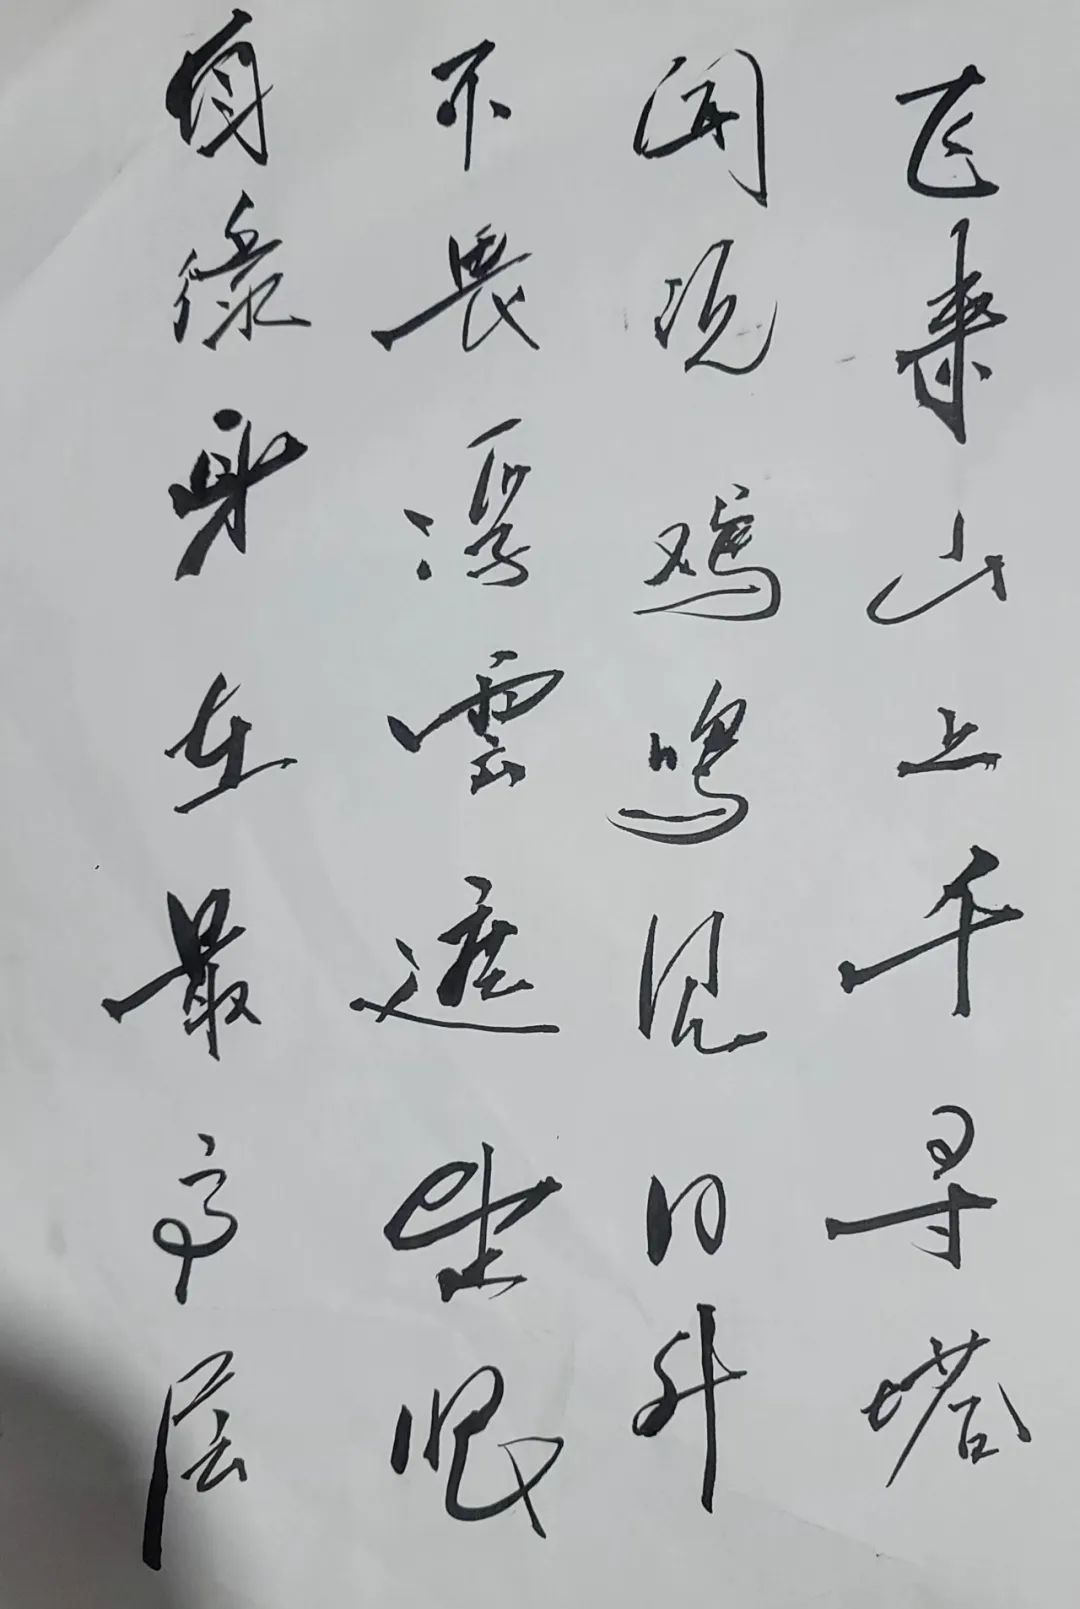 飞来山上千寻塔
闻说鸡鸣见日升
不畏浮雲遮望眼
自缘身在最高层